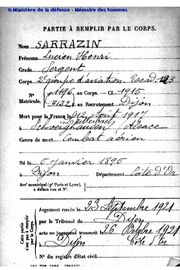 © Ministère de la défense - Mémoire des hommes
PARTIE À REMPLIR PAR LE CORPS.
Nom SARRAZIN
Prénoms Lucien Henri
Grade Sergent
Corps 2e Groupe d'aviation Escad.
N° au Corps. — Cl. 1915
Matricule. au Recrutement Dijon
Mort pour la France le 1917
Alsace
Genre de mort Combat aérien
Né le 6 janvier 1895
à Dijon Département Côte d'Or
Arrt municipal (pr Paris et Lyon),
à défaut rue et N°.
Jugement rendu le 1921
par le Tribunal de Dijon
acte ou jugement transcrit le 1921
à Dijon
N° du registre d'état civil